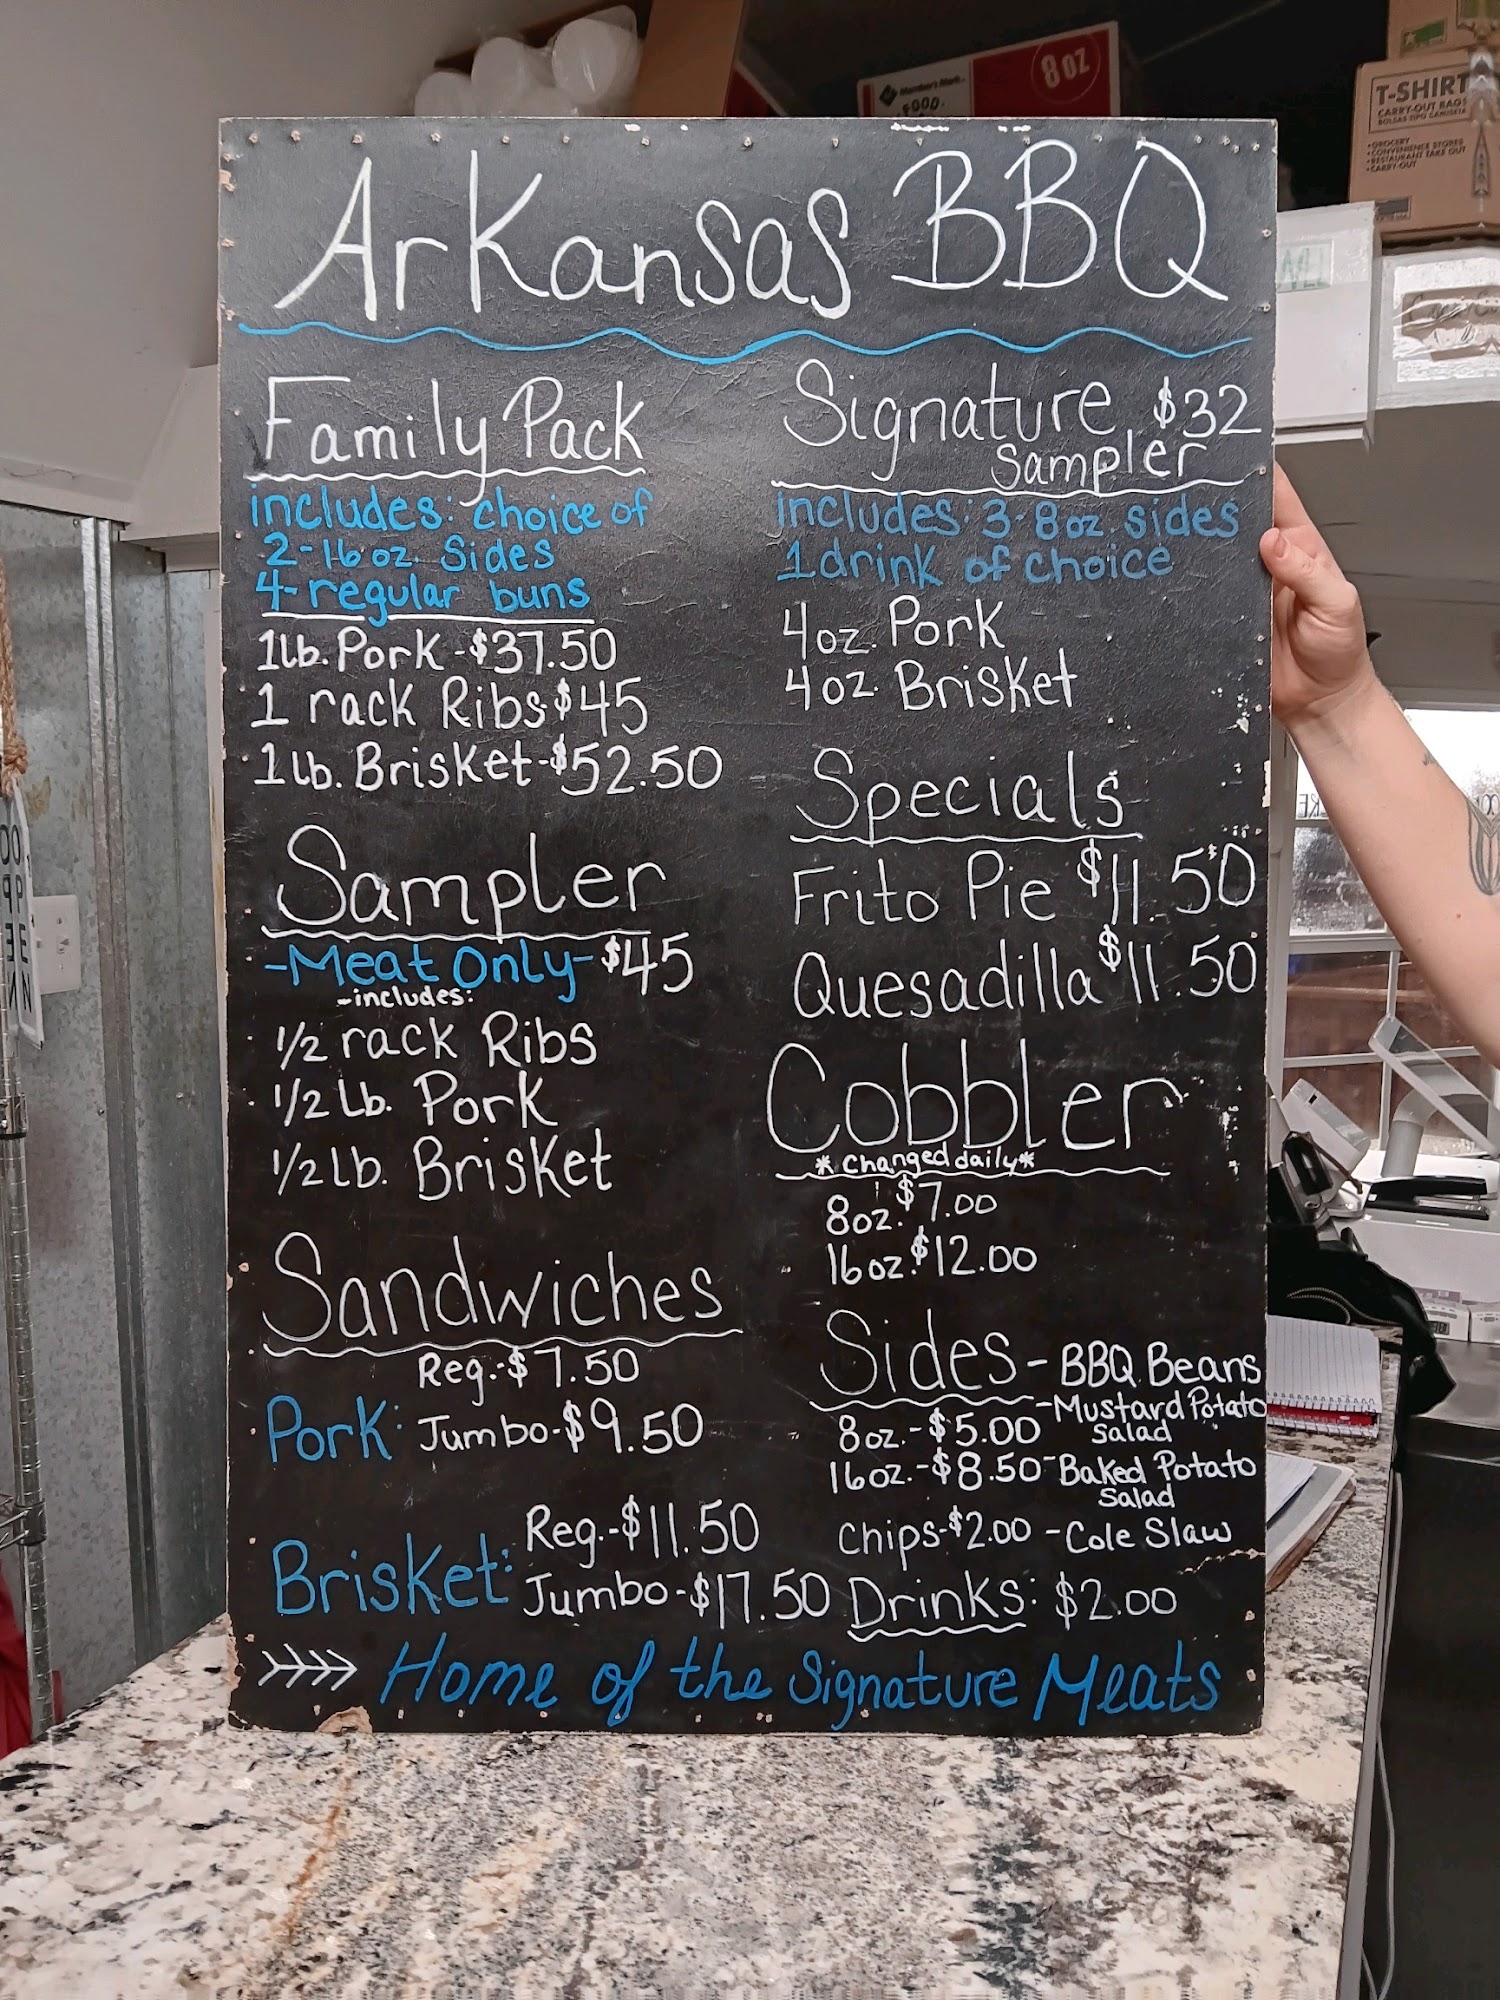 Member's Mark
FOOD
8 OZ
T-SHIRT
CARRY-OUT BAGS
BOLSAS TIPO CAMISETA
•GROCERY
•CONVENIENCE STORES
•RESTAURANT TAKE OUT
•CARRY-OUT
Arkansas BBQ
Family Pack
includes: choice of
2-16 oz. Sides
4-regular buns
1lb. Pork-$37.50
1 rack Ribs $45
1lb. Brisket-$52.50
Sampler
-Meat Only- $45
-includes:
1/2 rack Ribs
1/2 Lb. Pork
1/2 lb. Brisket
Sandwiches
Reg.-$7.50
Pork: Jumbo-$9.50
Reg.-$11.50
Brisket: Jumbo-$17.50
Signature $32
Sampler
includes: 3-8oz. sides
1 drink of choice
4oz. Pork
4oz. Brisket
Specials
Frito Pie $11.50
Quesadilla $11.50
Cobbler
*Changed daily*
8oz. $7.00
16oz. $12.00
Sides - BBQ Beans
8oz.-$5.00 -Mustard Potato
Salad
16oz.-$8.50 -Baked Potato
Salad
Chips-$2.00 -Cole Slaw
Drinks: $2.00
Home of the Signature Meats